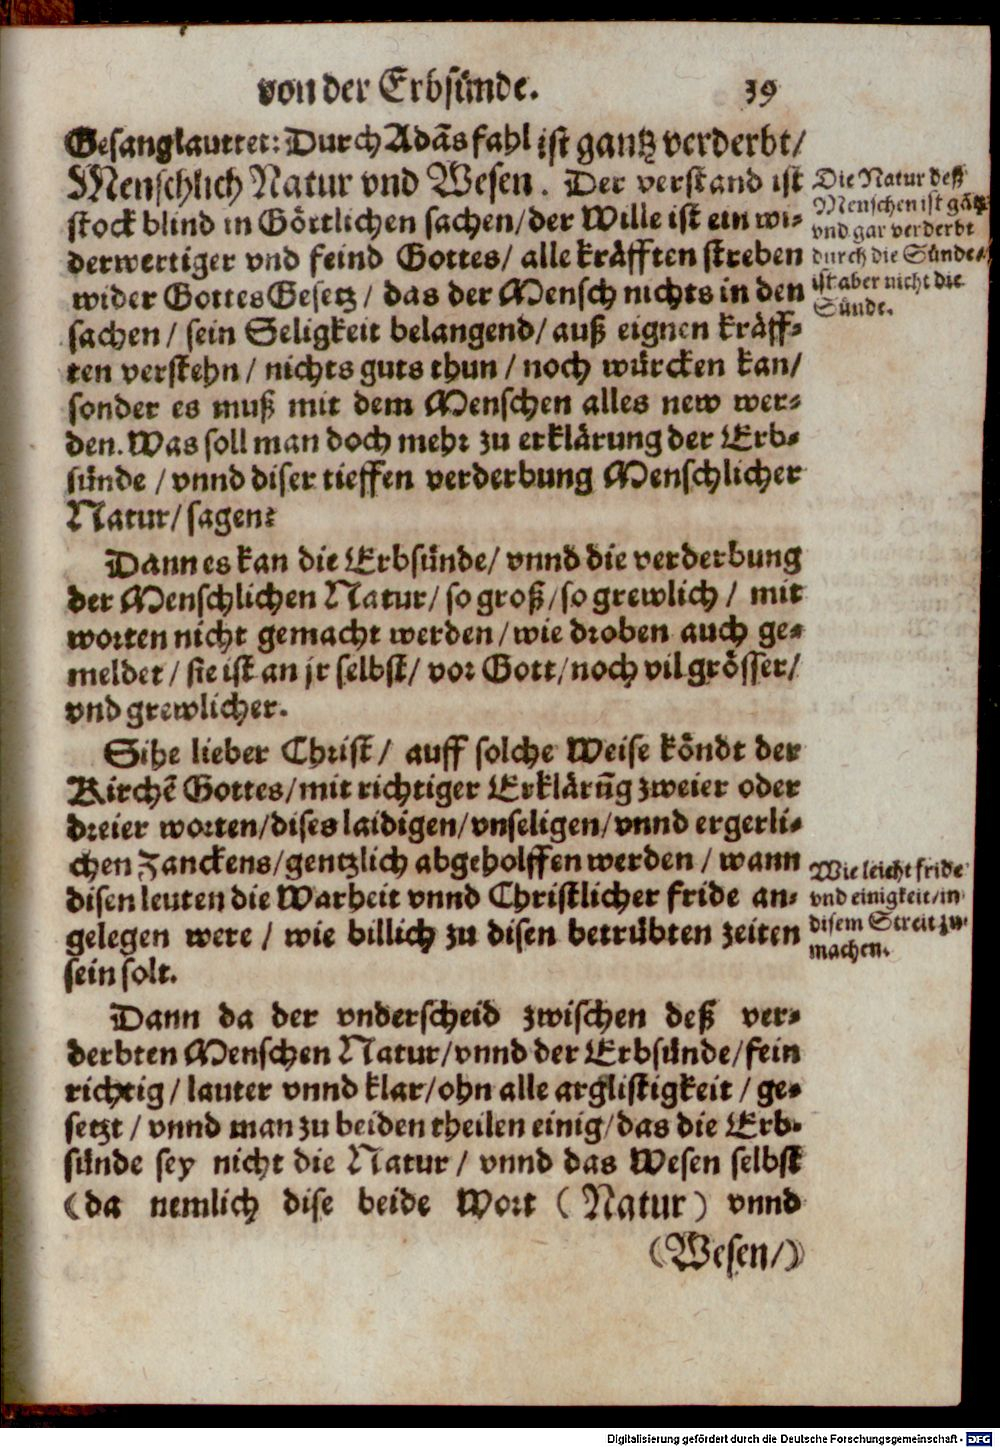 von der Erbsünde. 39
Gesang lauttet: Durch Adãs fahl ist gantz verderbt/
Menschlich Natur vnd Wesen. Der verstand ist
stock blind in Göttlichen sachen/ der Wille ist ein wi-
derwertiger vnd feind Gottes/ alle kräfften streben
wider Gottes Gesetz/ das der Mensch nichts in den
sachen/ sein Seligkeit belangend/ auß eignen kräff-
ten verstehn/ nichts guts thun/ noch würcken kan/
sonder es muß mit dem Menschen alles new wer-
den. Was soll man doch mehr zu erklärung der Erb-
sünde/ vnnd diser tieffen verderbung Menschlicher
Natur/ sagen?
Die Natur deß
Menschen ist gãtz
vnd gar verderbt
durch die Sünde/
ist aber nicht die
Sünde.
Dann es kan die Erbsünde/ vnnd die verderbung
der Menschlichen Natur/ so groß/ so grewlich/ mit
worten nicht gemacht werden/ wie droben auch ge-
meldet/ sie ist an jr selbst/ vor Gott/ noch vil grösser/
vnd grewlicher.
Sihe lieber Christ/ auff solche Weise köndt der
Kirchẽ Gottes/ mit richtiger Erklärũg zweier oder
dreier worten/ dises laidigen/ vnseligen/ vnnd ergerli-
chen Zanckens/ gentzlich abgeholffen werden/ wann
disen leuten die Warheit vnnd Christlicher fride an-
gelegen were/ wie billich zu disen betrübten zeiten
sein solt.
Wie leicht fride
vnd einigkeit/ in
disem Streit zu
machen.
Dann da der vnderscheid zwischen deß ver-
derbten Menschen Natur/ vnnd der Erbsünde/ fein
richtig/ lauter vnnd klar/ ohn alle arglistigkeit/ ge-
setzt/ vnnd man zu beiden theilen einig/ das die Erb-
sünde sey nicht die Natur/ vnnd das Wesen selbst
(da nemlich dise beide Wort (Natur) vnnd
(Wesen/)
Digitalisierung gefördert durch die Deutsche Forschungsgemeinschaft - DFG